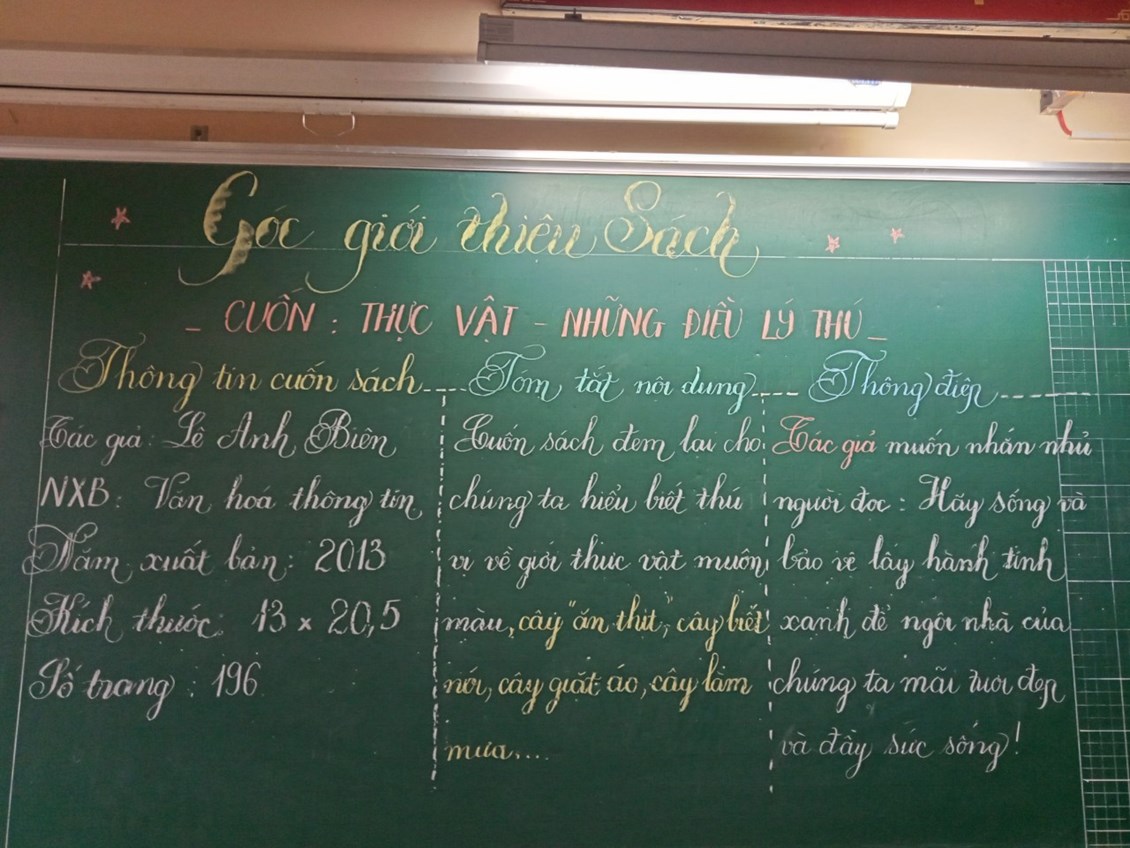 Góc giới thiệu Sách
- CUỐN : THỰC VẬT - NHỮNG ĐIỀU LÝ THÚ -
Thông tin cuốn sách
Tác giả: Lê Anh Biên
NXB: Văn hoá thông tin
Năm xuất bản: 2013
Kích thước: 13 x 20,5
Số trang : 196
Tóm tắt nội dung
Cuốn sách đem lại cho
chúng ta hiểu biết thú
vị về giới thực vật muôn
màu, cây "ăn thịt", cây biết
nói, cây giặt áo, cây làm
mưa....
Thông điệp
Tác giả muốn nhắn nhủ
người đọc : Hãy sống và
bảo vệ lấy hành tinh
xanh để ngôi nhà của
chúng ta mãi tươi đẹp
và đầy sức sống!